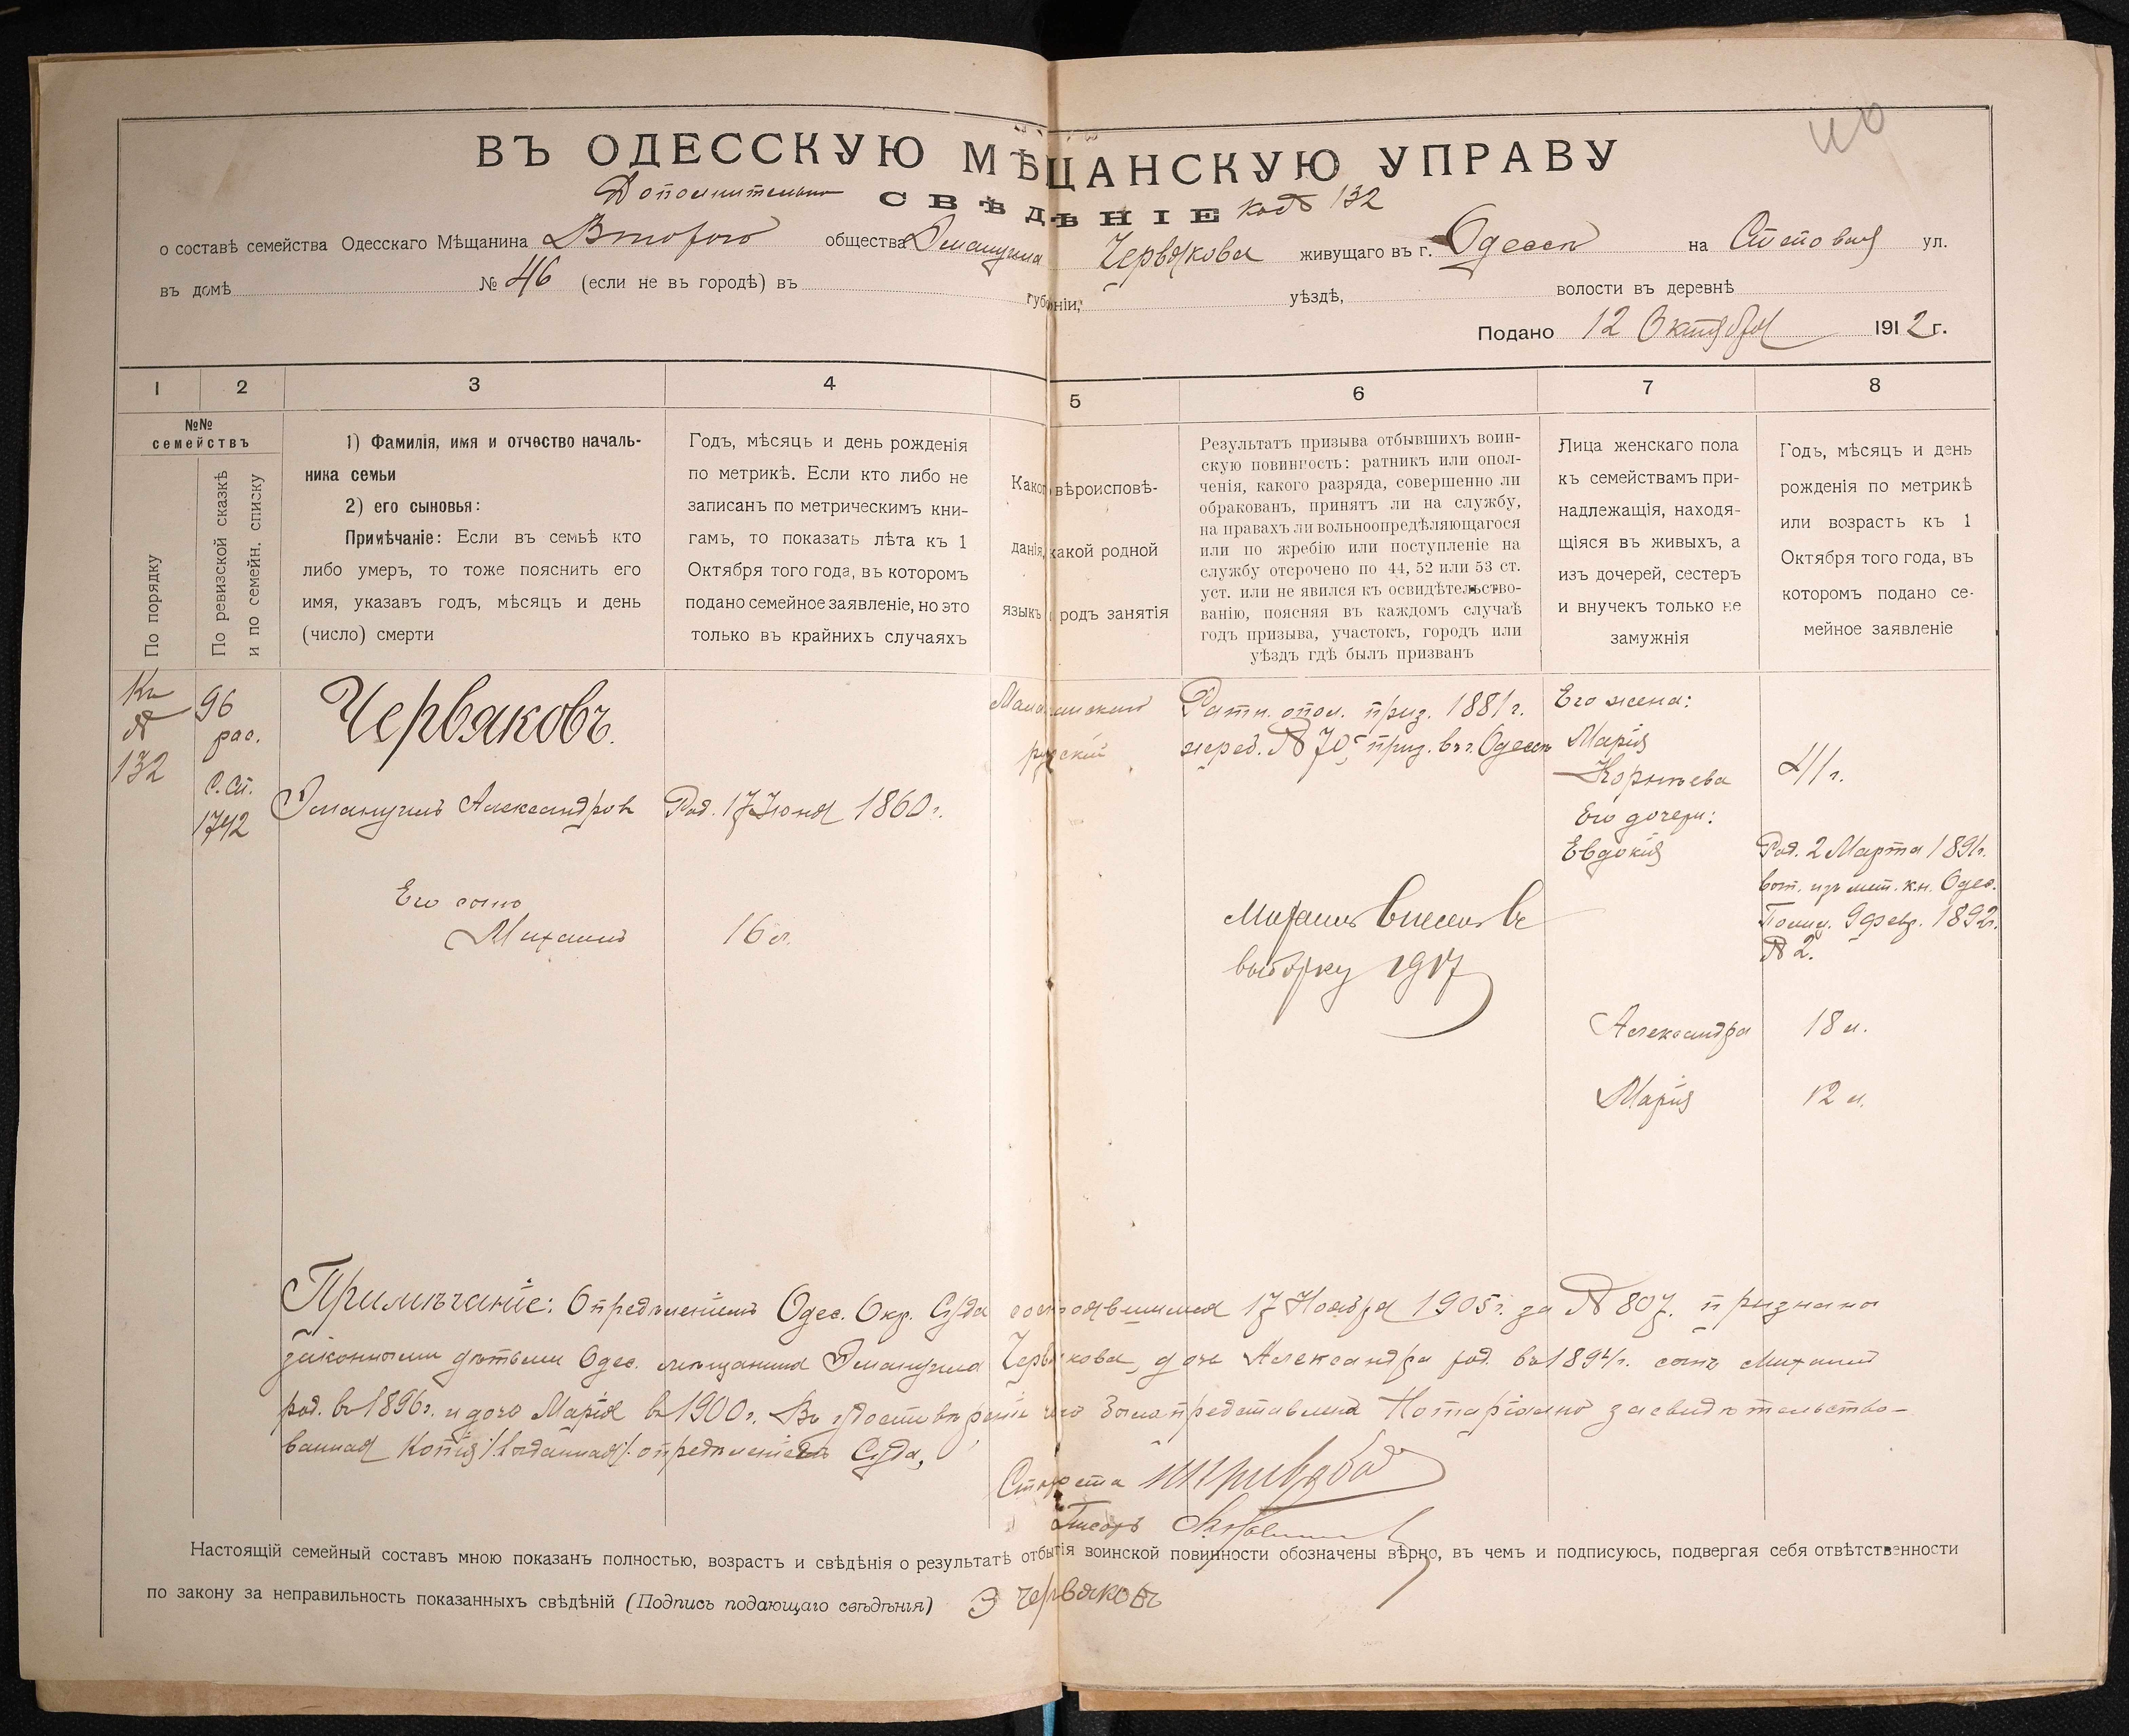 ВЪ ОДЕССКУЮ МѢЩАНСКУЮ УПРАВУ
Дополнительно СВѢДѢНІЕ 132
о составѣ семейства Одесскаго Мѣщанина Второго общества Эмануила Червякова живущаго въ г. Одессѣ на Степовая ул.
въ домѣ № 46 (если не въ городѣ) въ губерніи, уѣздѣ, волости въ деревнѣ
Подано 12 Октября 1912 г.
1 2 3 4 5 6 7 8
№№
семействъ
По порядку
По ревизской сказкѣ
и по семейн. списку
1) Фамилія, имя и отчество началь-
ника семьи
2) его сыновья:
Примѣчаніе: Если въ семьѣ кто
либо умеръ, то тоже пояснить его
имя, указавъ годъ, мѣсяцъ и день
(число) смерти
Годъ, мѣсяцъ и день рожденія
по метрикѣ. Если кто либо не
записанъ по метрическимъ кни-
гамъ, то показать лѣта къ 1
Октября того года, въ которомъ
подано семейное заявленіе, но это
только въ крайнихъ случаяхъ
Какого вѣроисповѣ-
данія, какой родной
языкъ и родъ занятія
Результатъ призыва отбывшихъ воин-
скую повинность: ратникъ или опол-
ченія, какого разряда, совершенно ли
обракованъ, принятъ ли на службу,
на правахъ ли вольноопредѣляющагося
или по жребію или поступленіе на
службу отсрочено по 44, 52 или 53 ст.
уст. или не явился къ освидѣтельство-
ванію, поясняя въ каждомъ случаѣ
годъ призыва, участокъ, городъ или
уѣздъ гдѣ былъ призванъ
Лица женскаго пола
къ семействамъ при-
надлежащія, находя-
щіяся въ живыхъ, а
изъ дочерей, сестеръ
и внучекъ только не
замужнія
Годъ, мѣсяцъ и день
рожденія по метрикѣ
или возрастъ къ 1
Октября того года, въ
которомъ подано се-
мейное заявленіе
Къ
№
132
96
рас.
С. сп.
1742
Червяковъ.
Эмануилъ Александровъ
Род. 17 Іюня 1860 г.
Его сынъ
Михаилъ
16 л.
русскій
Ратн. опол. приз. 1881 г.
жереб. № 705, приз. въ г. Одессѣ
Михаилъ внесенъ въ
выборку 1917
Его жена:
Марія
Корнѣева
41 г.
Его дочери:
Евдокія
Род. 2 Марта 1891 г.
вып. изъ мет. кн. Одес.
9 февр. 1892 г.
№ 2.
Александра 18 л.
Марія 12 л.
Примѣчаніе: Опредѣленіемъ Одес. Окр. Суда состоявшимся 17 Ноября 1905 г. за № 807. признаны
законными дѣтьми Одес. мѣщанина Эмануила Червякова, дочь Александра род. въ 1894 г. сынъ Михаилъ
род. въ 1896 г. и дочь Марія въ 1900 г. Въ удостовѣреніе чего была представлена Нотаріально засвидѣтельство-
ванная копія /:выданная:/ опредѣленіемъ Суда,
Староста
Писарь
Настоящій семейный составъ мною показанъ полностью, возрастъ и свѣдѣнія о результатѣ отбытія воинской повинности обозначены вѣрно, въ чемъ и подписуюсь, подвергая себя отвѣтственности
по закону за неправильность показанныхъ свѣдѣній (Подпись подающаго свѣдѣнія) Э Червяковъ